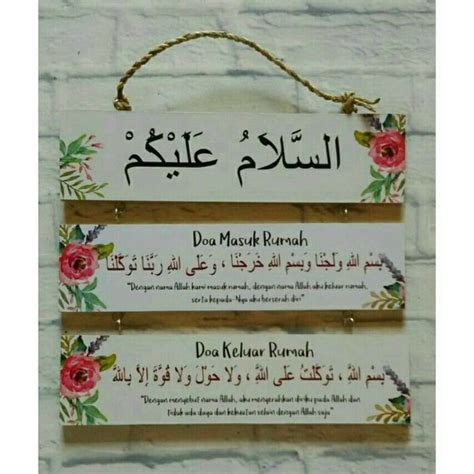 السَّلَامُ عَلَيْكُمْ
Doa Masuk Rumah
بِسْمِ اللهِ وَلَجْنَا وَبِسْمِ اللهِ خَرَجْنَا ، وَعَلَى اللهِ رَبِّنَا تَوَكَّلْنَا
"Dengan nama Allah kami masuk rumah, dengan nama Allah aku keluar rumah,
serta kepada-Nya aku berserah diri"
Doa Keluar Rumah
بِسْمِ اللهِ ، تَوَكَّلْتُ عَلَى اللهِ ، وَلَا حَوْلَ وَلَا قُوَّةَ إِلاَّ بِاللهِ
"Dengan menyebut nama Allah, aku menyerahkan diriku pada Allah dan
tidak ada daya dan kekuatan selain dengan Allah saja"